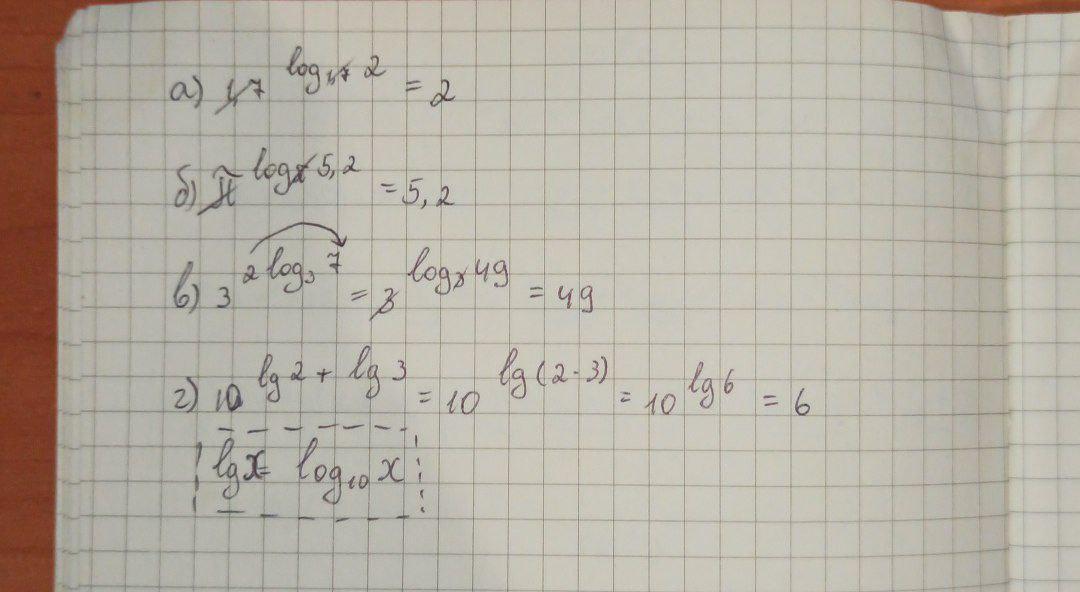 а) 1,7^(log_1,7 2) = 2
б) π^(log_π 5,2) = 5,2
в) 3^(2 log_3 7) = 3^(log_3 49) = 49
г) 10^(lg 2 + lg 3) = 10^(lg (2·3)) = 10^(lg 6) = 6
lg x = log_10 x